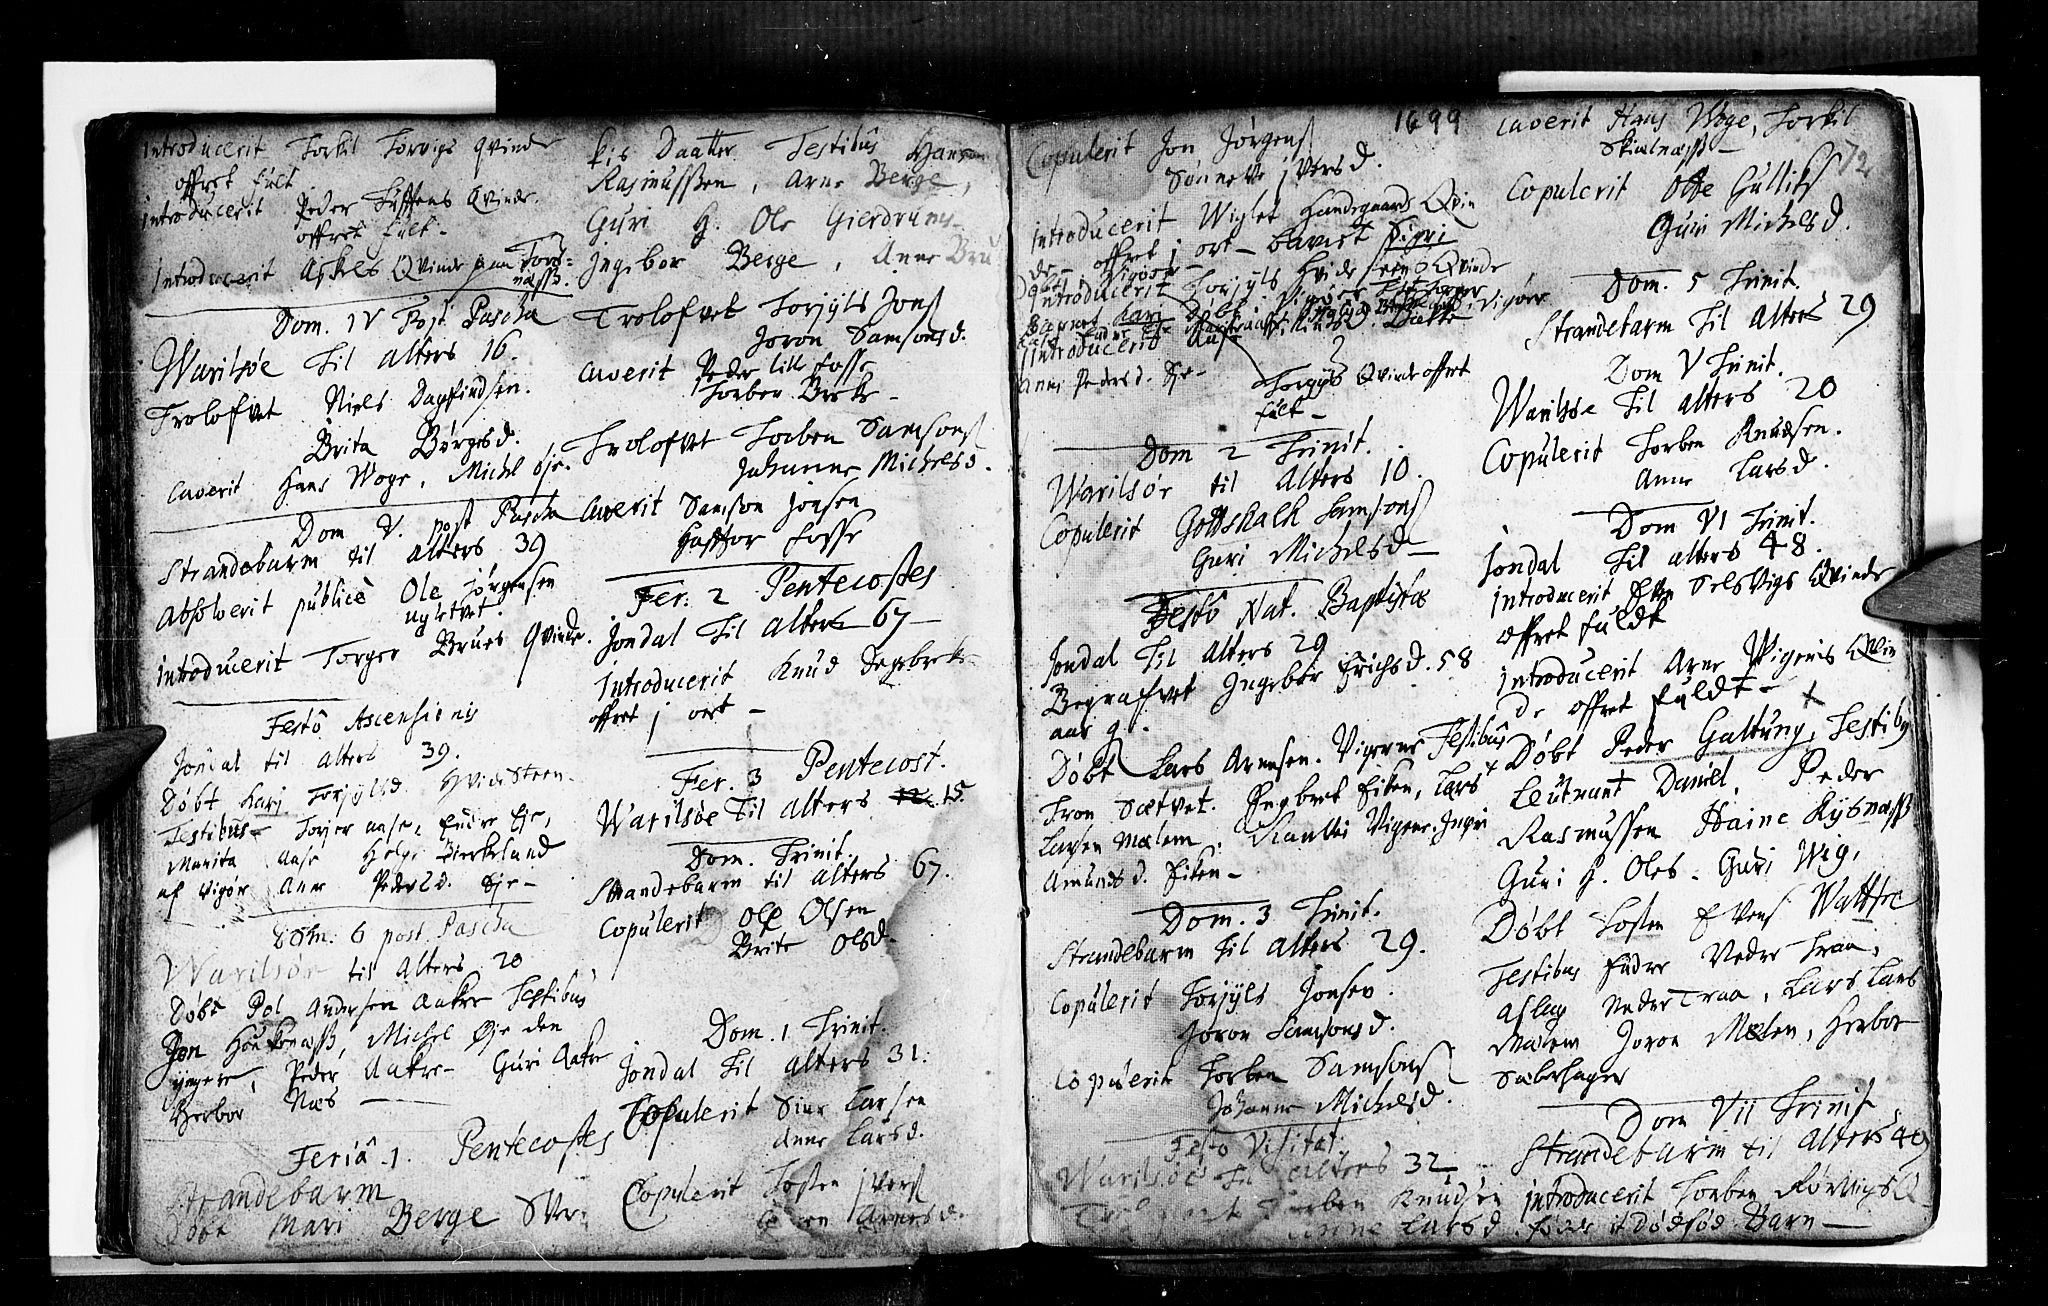 introducerit Torkil Torvigs qvinde
offret fult
introducerit Peder Tuftens Qvinde.
offret fult -
introducerit Askels Qvinde paa Tors-
næss.
Dom. IV Post Pascha
Warilsøe Til alters 16.
Trolofvet Niels Dagfindsen.
Brita Børgesd.
caverit Hans Woge, Michel øje.
Dom V. post Pascha
Strandebarm til alters 39
Absolverit publicè Ole Jørgensen
ugletvet.
introducerit Torger Brues Qvinde.
Festo Ascensionis
Jondal til alters 39.
Døbt Karj Torjylsd. Hvidesteen.
Testibus Torjer aase, Endre Eje,
Marita Aase Helge Birkeland
af Vigør Anne Pedersd. Eje -
Dom. 6 post Pascha
Warilsøe til Alters 20
Døbt Pol Andersen Aakre Testibus
Jon Houkenæss, Michel Øje den
yngere, Peder Aakre - Guri Aakre
Herbor Næs
Feriâ 1. Pentecostes
Strandebarm
Døbt Mari Berge Sver-
kis Daatter Testibus Hans
Rasmussen, Arne Berge,
Guri H. Ole Gierdrums
Ingebor Berge, Anne Bru
Trolofvet Torjyls Jons
Joron Samsonsd.
caverit Peder lille fosse
Torben Birke -
Trolofvet Torben Samsons
Johanne Michelsd.
caverit Samson Jonsen
Haffor Fosse
Fer: 2 Pentecostes
Jondal Til alters 67 -
introducerit Knud Segebreke
offret j ort -
Fer. 3 Pentecost.
Warilsøe Til alters 12. 15.
Dom. Trinit.
Strandebarm til alters 67.
Copulerit Ole Olsen
Brite Olsd.
Dom. 1 Trinit.
Jondal Til alters 31.
Copulerit Siur Larsen
Anne Larsd.
Copulerit Tosten jvers
Arnesd.
1699
Copulerit Jon Jørgens
Sønneve jversd.
introducerit Wiglet Handegaards Qvin
de - offret j ort - barnet Sigri
introducerit Torjyls Hvidesteens Qvinde
introducerit Aase
Anne Pedersd. Eje - Torgyls Qvinde offret
fult -
Dom 2 Trinit.
Warilsøe til alters 10.
Copulerit Gottskalk Samsons
Guri Michelsd -
Festo Nat. Baptistæ
Jondal Til alters 29
Begrafvet Ingebor Erichsd. 58
aar g.
Døbt Lars Arnesen. Vigenes Testibus
Tron Sætvet. Engebret Eiken, Lars
Larsen Mælem. Ranvei Vigene. Ingri
Amundsd. Eiken -
Dom. 3 Trinit.
Strandebarm til alters 29.
Copulerit Torjyls Jonsen.
Joron Samsonsd.
Copulerit Torben Samsons
Johanne Michelsd.
Festo Visitat.
Warilsøe til alters 32
Torben Knudsen
Anne Larsd.
caverit Hans Woge, Torkil
Skialnæss -
72
Copulerit Offe Gulliks
Guri Michelsd.
Dom. 5 Trinit.
Strandebarm Til Alters 29
Dom V Trinit.
Warilsøe Til alters 20
Copulerit Torben Knudsen.
Anne Larsd.
Dom VI Trinit.
Jondal Til alters 48.
introducerit Selsvigs Qvinde
offret fuldt
introducerit Arne Vigenis Qvin
de offret fuldt -
Døbt Peder Galtung, Testibg
Leutnant Daniel, Peder
Rasmussen Haine Kysnæss
Guri H. Oles - Guri Wig,
Døbt Tosten Evens Wattse
Testibus Endre Nedre Traa,
Aslag NederTraa, Lars Lars
Mælem Joron Mælen, Herbor
Sæbrhager
Dom VII Trinit
Strandebarm til Alters 49
introducerit Torben Rørvigs Q
føde it Dødfød Barn -